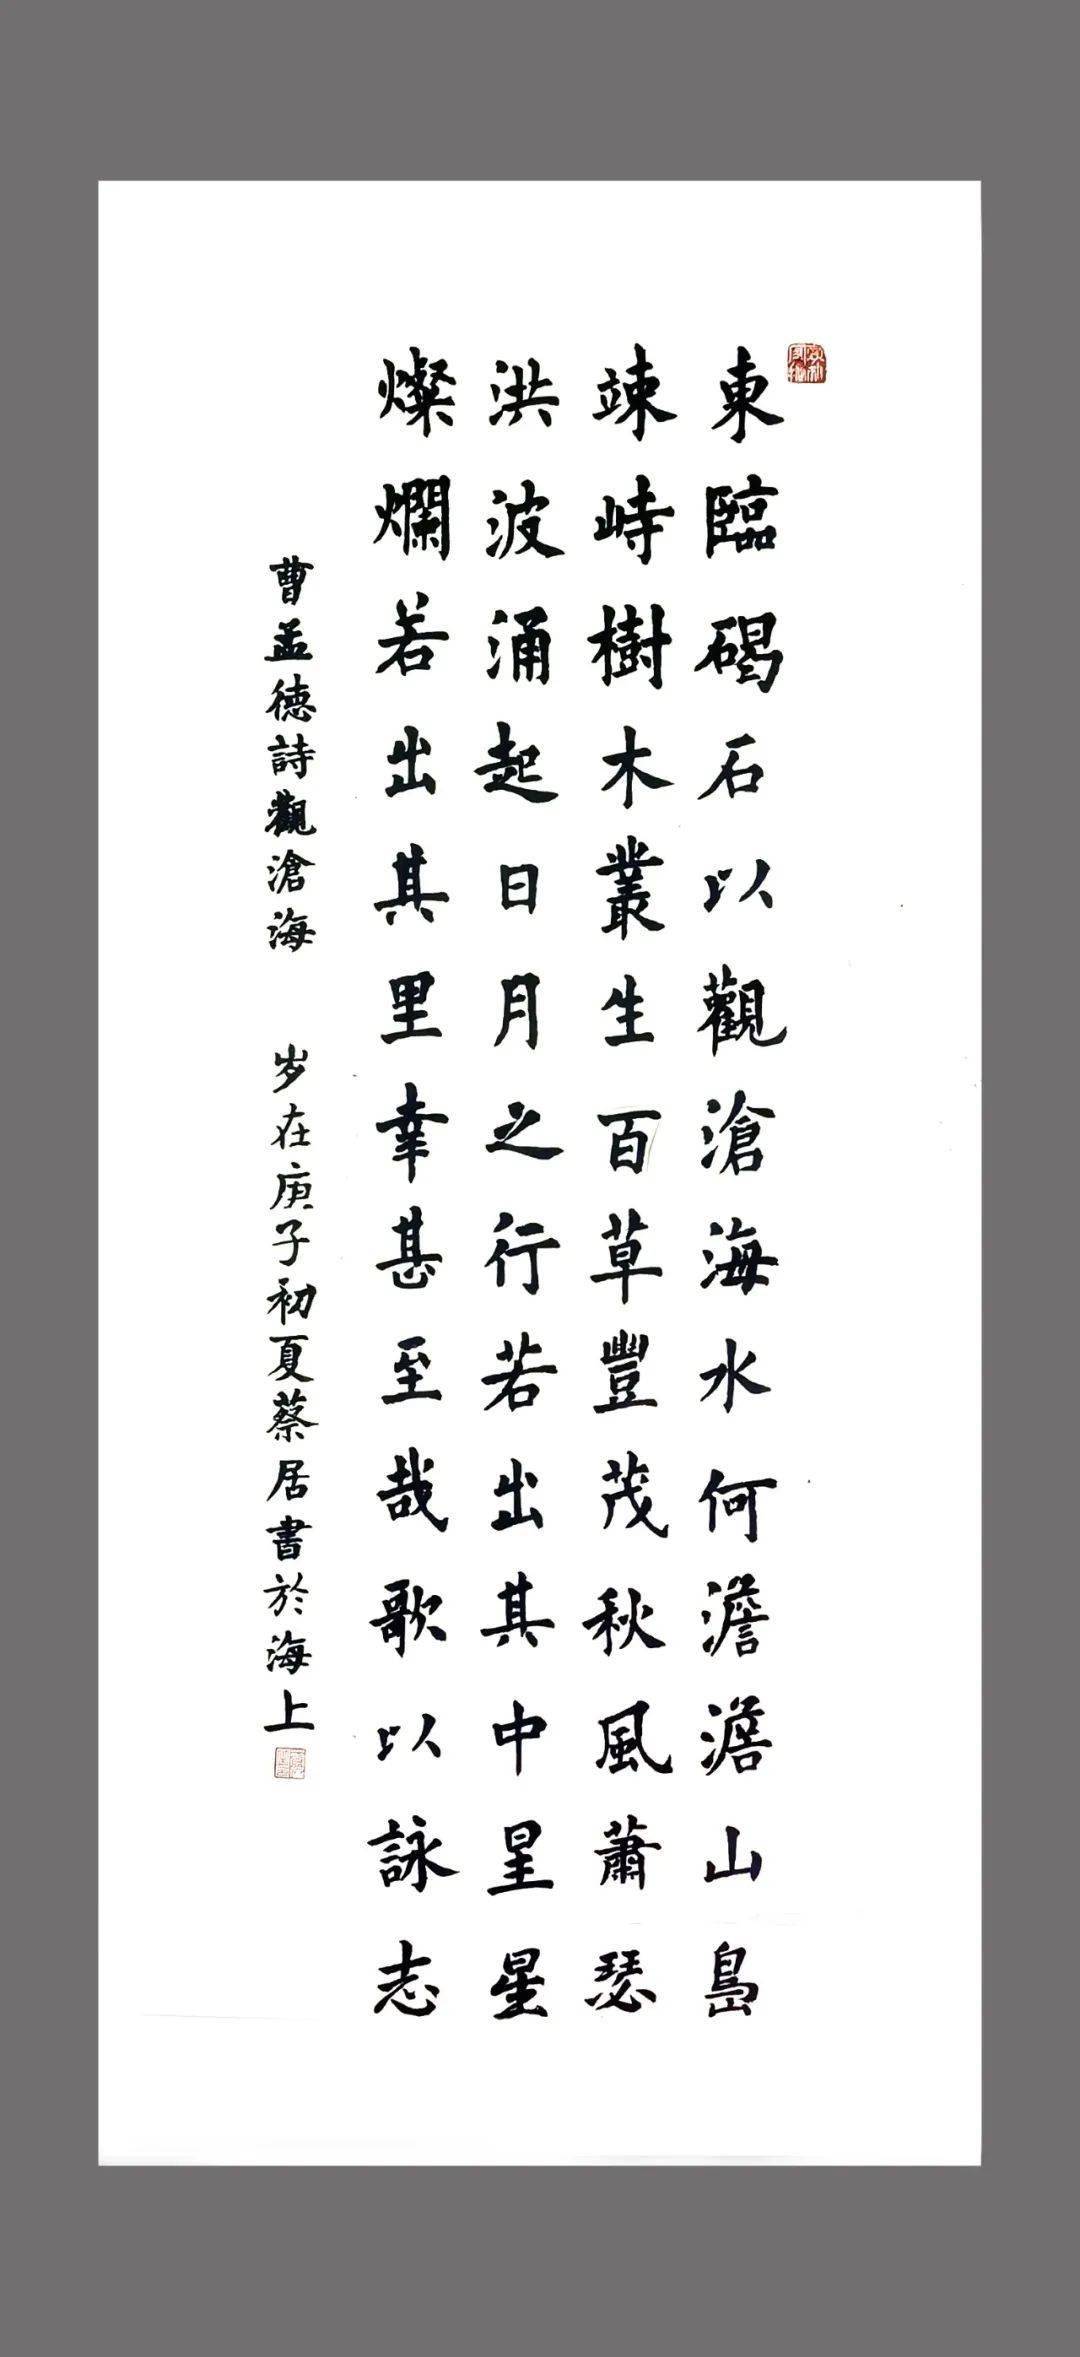 東臨碣石以觀滄海水何澹澹山島
竦峙樹木叢生百草豐茂秋風蕭瑟
洪波涌起日月之行若出其中星星
燦爛若出其里幸甚至哉歌以詠志
曹孟德詩觀滄海 岁在庚子初夏蔡居書於海上